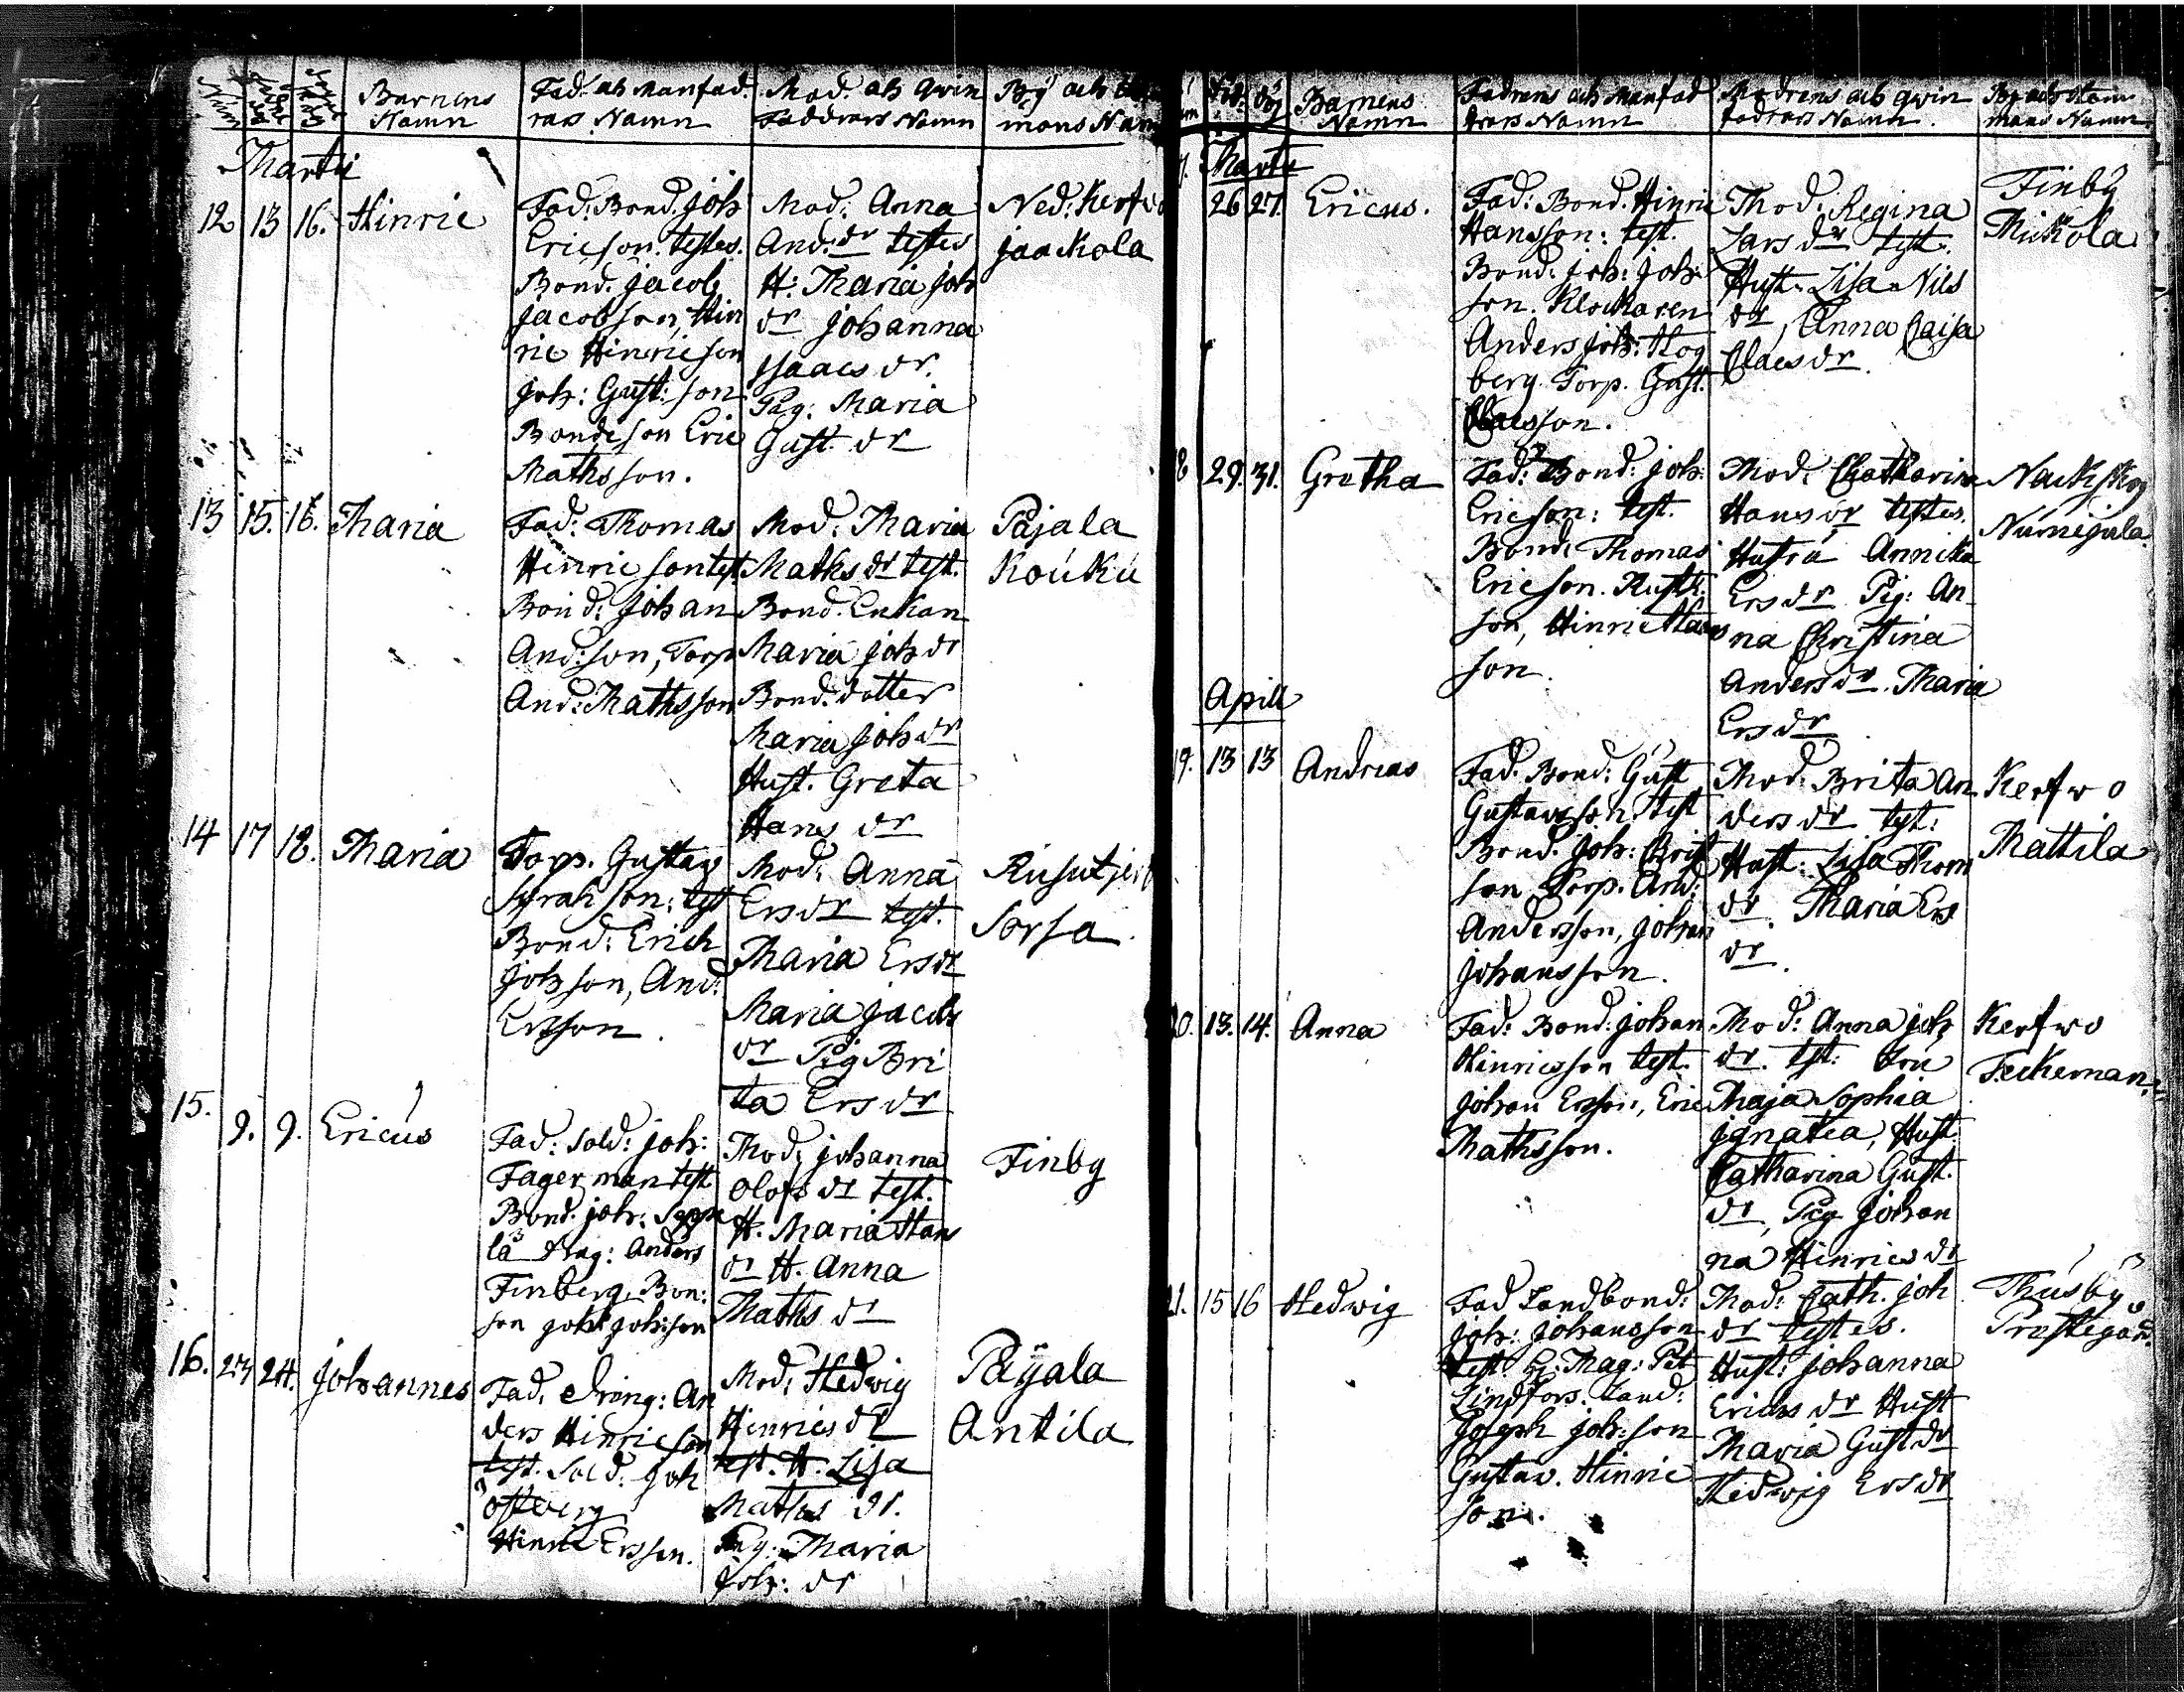 Num
Barnens
Namn
Fad. och Manfad.
rars Namn
Mod. och Qvin
Faddrars Namn
By och
mans Namn
Martii
12 13 16. Hinric
Fad: Bond. Joh
Ericson. testes.
Bond. Jacob
Jacobson, Hin
ric Hinricson
Joh: Gust: son
Bondeson Eric
Mathsson.
Mod: Anna
And: dr testes
H: Maria Joh
dr Johanna
Isaacs dr.
Pig: Maria
Gust dr
Ned: Kerfwo
Jaackola
13 15. 16. Maria
Fad: Thomas
Hinricson test
Bond: Johan
And:son, Torp
And: Mathsson
Mod: Maria
Maths dr test.
Bond. Enkan
Maria Joh dr
Bond. dotter
Maria Joh dr
Hust. Greta
Hans dr
Pajala
Kouku
14 17 18. Maria
Torp. Gustav
son: test
Bond: Erich
Johsson, And:
Ersson
Mod: Anna
Ers dr test.
Maria Ers dr
Maria Jacobs
dr Pig Bri
ta Ers dr
Sorsa.
15. 9. 9. Ericus
Fad: Sold: Joh:
Fagerman test
Bond. Joh: Seppe
la Drag: Anders
Finberg, Bon:
son Joh: Joh:son
Mod: Johanna
Olofs dr test.
H. Maria Hans
dr H. Anna
Maths dr
Finby
16. 23 24. Johannes
Fad: Dräng: An
ders Hinricson
test. Sold: Joh
Ostberg
Hinric Ersson.
Mod: Hedwig
Hinrics dr
test. H. Lisa
Maths dr.
Pig: Maria
Joh: dr
Päjala
Antila
Barnens
Namn
Fadrens och Manfad
drars Namn
Modrens och Qvin
fadrars Namn.
By och Hem
mans Namn.
Martii
26 27. Ericus.
Fad: Bond. Hinric
Hansson: test.
Bond: Joh: Joh:
son. Klockaren
Anders Joh: Hog
berg. Torp. Gust.
Claesson.
Mod: Regina
Lars dr test.
Hust. Lisa Nils
dr, Anna Caisa
Claes dr.
Finby
Mickola
8 29. 31. Gretha
Fad: Bond: Joh.
Ericson: test.
Bond: Thomas
Ericson. Rusth:
son, Hinric Hans
son.
Mod: Chatharina
Hans dr testes.
Hustru Annika
Ers dr Pig: An
na Christina
Anders dr. Maria
Ers dr
Nackskog
Numejala
Aprill
19. 13 13 Andreas
Fad. Bond: Gust
Gustavsson test
Bond. Joh: Christ
son Torp. And:
Andersson, Johan
Johansson.
Mod: Brita An
ders dr test:
Hust: Lisa Thom
dr. Maria Ers
dr.
Kerfwo
Mattila
20. 13. 14. Anna
Fad: Bond: Johan
Hinricsson test.
Johan Ersson, Eric
Mathsson.
Mod: Anna Joh
dr. test: Fru
Maja Sophia
Ignatea, Hust
Catharina Gust.
dr, Pig Johan
na Hinrics dr
Kerfwo
Feckeman.
21. 15 16 Hedwig
Fad Landbond:
Joh: Johansson
test. Hr. Mag: Pet
Lindfors. Land:
Joseph Joh:son
Gustav. Hinric
son.
Mod: Cath. Joh
dr testes.
Hust: Johanna
Erics dr Hust
Maria Gust dr
Hedwig Ers dr
Thusby
Prostegård.